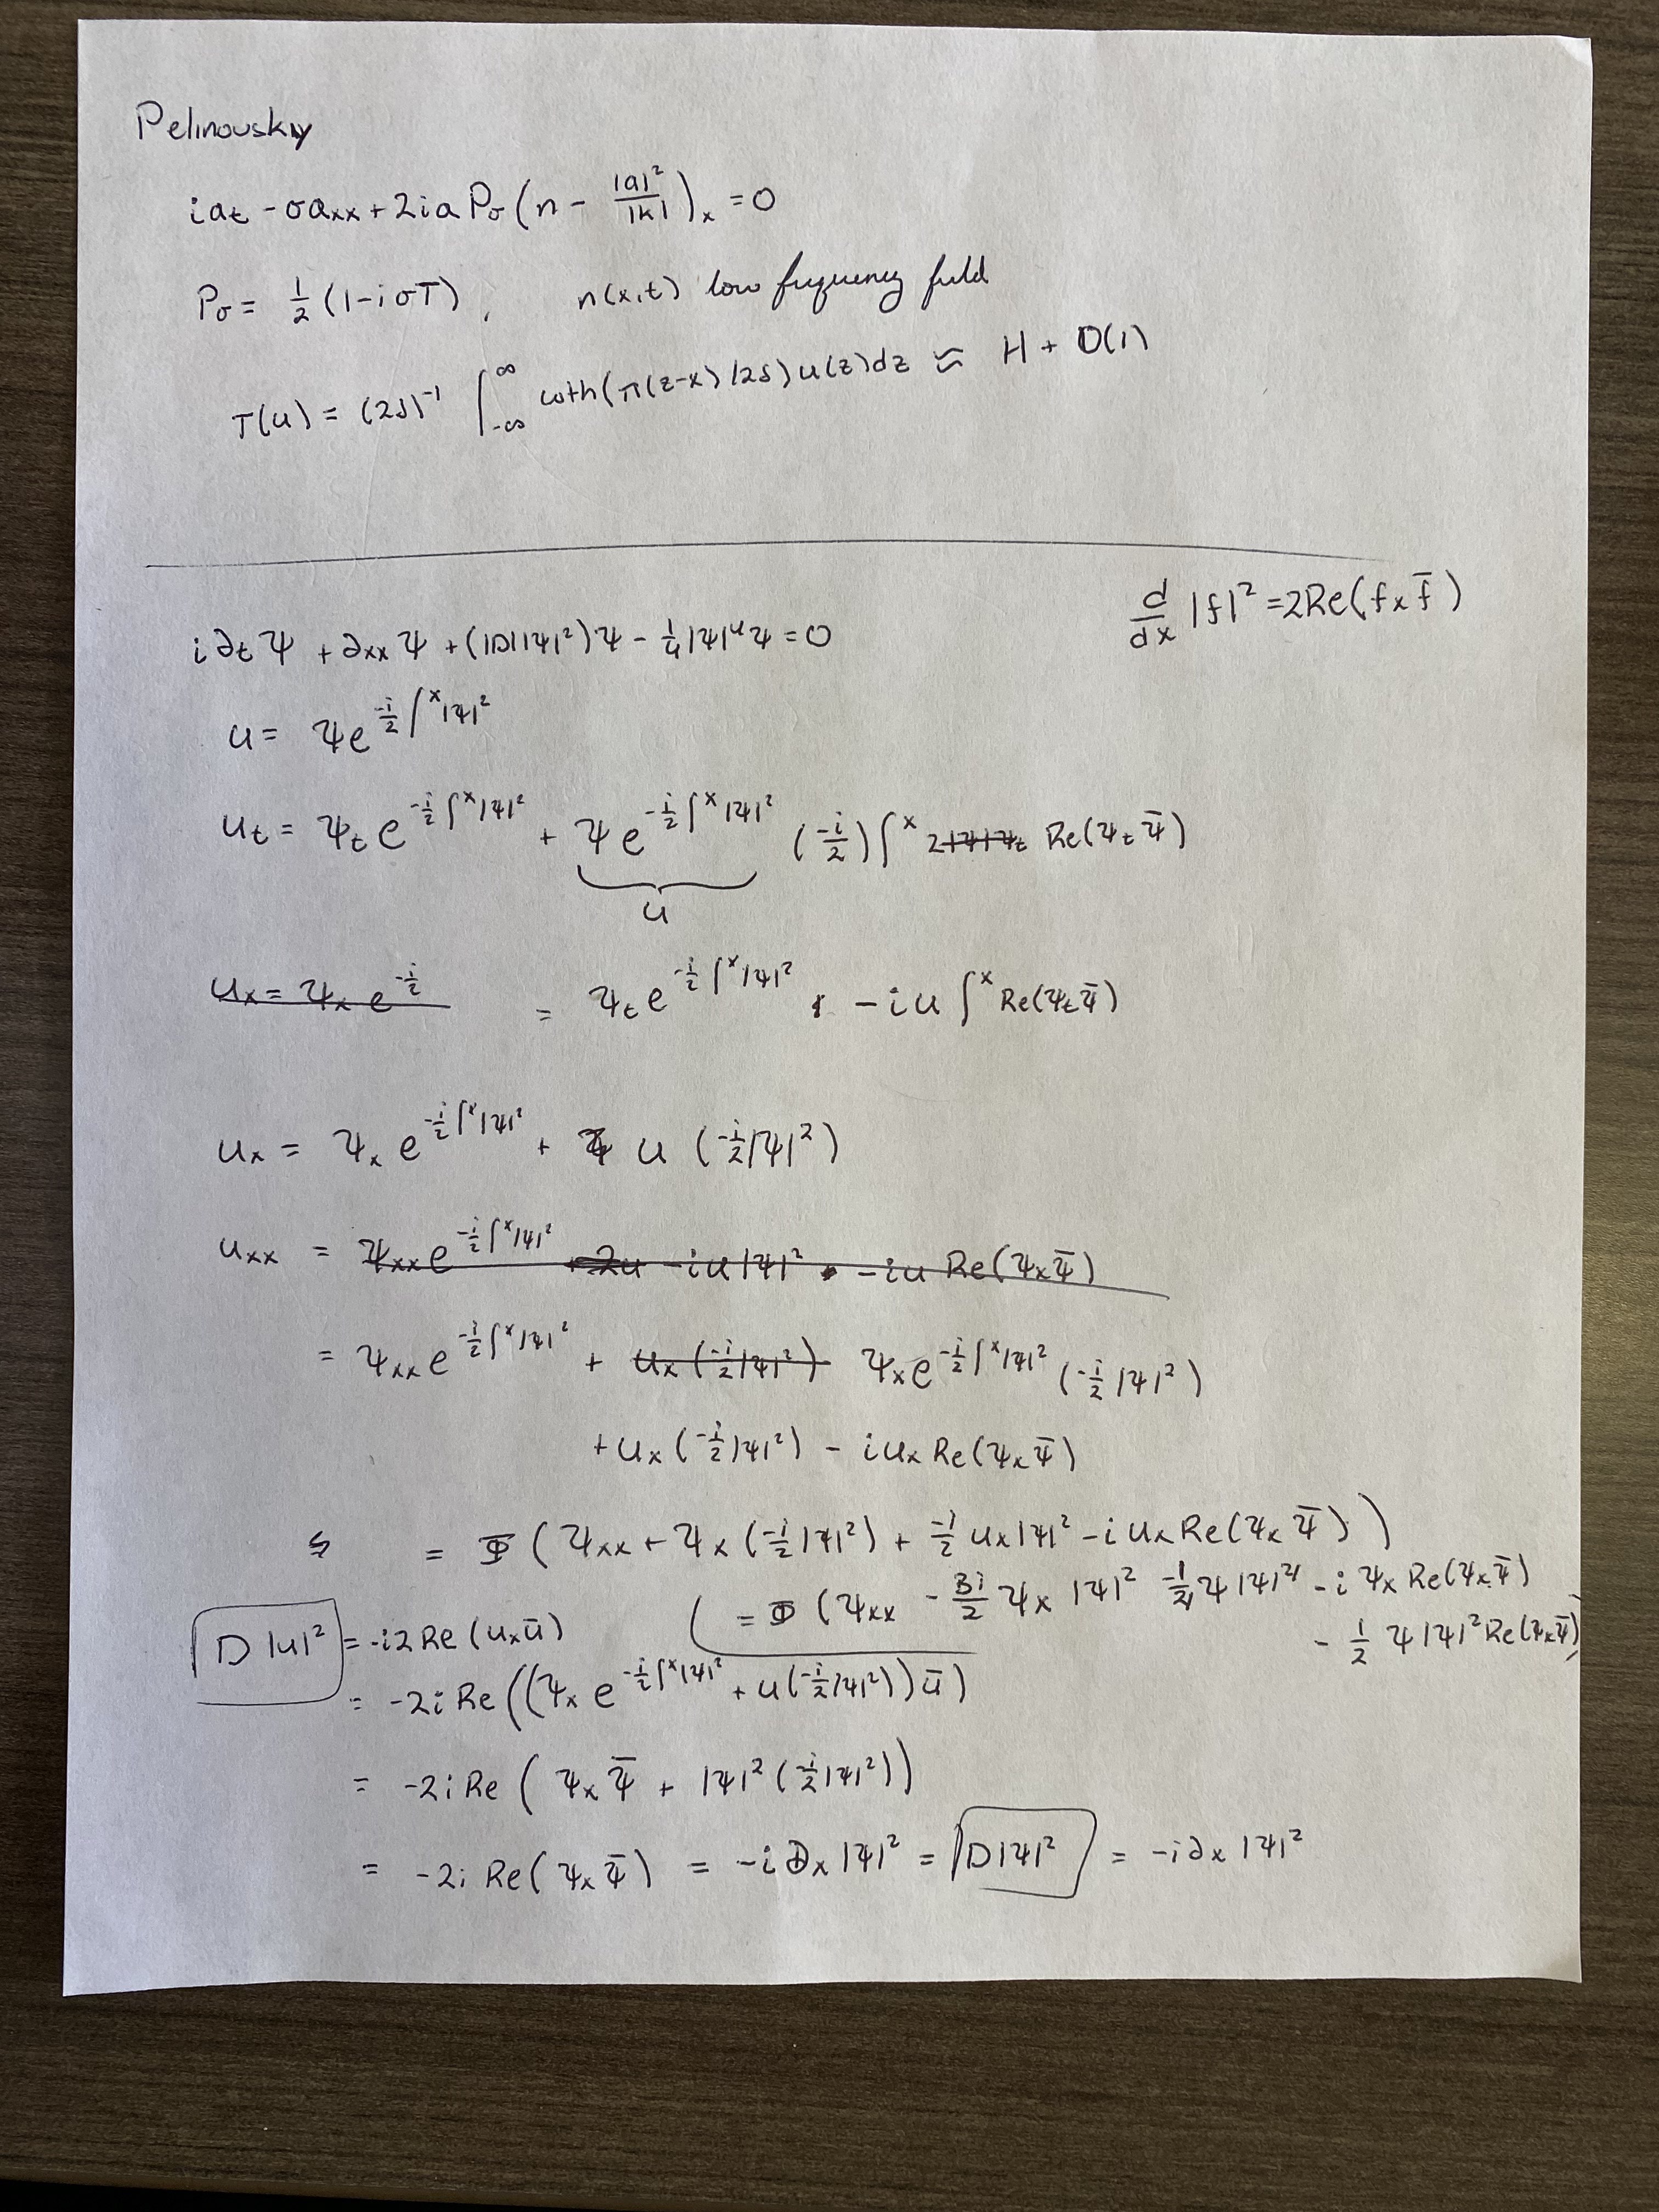 Pelinovskiy
i a_t - σ a_xx + 2i a P_σ (n - |a|²/|k|)_x = 0
P_σ = 1/2 (1 - i σ T), n(x,t) low frequency field
T(u) = (2δ)^-1 ∫_-∞^∞ coth(π(z-x)/2δ) u(z) dz ≈ H + O(1)
d/dx |f|² = 2Re(f_x f̄)
i ∂_t Ψ + ∂_xx Ψ + (|D||Ψ|²)Ψ - 1/4 |Ψ|⁴ Ψ = 0
u = Ψ e^{-i/2 ∫^x |Ψ|²}
u_t = Ψ_t e^{-i/2 ∫^x |Ψ|²} + Ψ e^{-i/2 ∫^x |Ψ|²} (-i/2) ∫^x 2 |Ψ|Ψ_t Re(Ψ_t Ψ̄)
u
u_x = Ψ_x e^{-i/2} = Ψ_t e^{-i/2 ∫^x |Ψ|²} - i u ∫^x Re(Ψ_t Ψ̄)
u_x = Ψ_x e^{-i/2 ∫^x |Ψ|²} + u (-i/2 |Ψ|²)
u_xx = Ψ_xx e^{-i/2 ∫^x |Ψ|²} + 2u - i u |Ψ|² - i u Re(Ψ_x Ψ̄)
= Ψ_xx e^{-i/2 ∫^x |Ψ|²} + u_x (-i/2 |Ψ|²) Ψ_x e^{-i/2 ∫^x |Ψ|²} (-i/2 |Ψ|²)
+ u_x (-i/2 |Ψ|²) - i u_x Re(Ψ_x Ψ̄)
= Φ (Ψ_xx + Ψ_x (-i/2 |Ψ|²) + -i/2 u_x |Ψ|² - i u_x Re(Ψ_x Ψ̄))
= Φ (Ψ_xx - 3i/2 Ψ_x |Ψ|² -1/4 Ψ |Ψ|⁴ - i Ψ_x Re(Ψ_x Ψ̄)
- 1/2 Ψ |Ψ|² Re(Ψ_x Ψ̄)
D |u|² = -i 2 Re(u_x ū)
= -2i Re((Ψ_x e^{-i/2 ∫^x |Ψ|²} + u (-i/2 |Ψ|²)) ū)
= -2i Re(Ψ_x Ψ̄ + |Ψ|² (-i/2 |Ψ|²))
= -2i Re(Ψ_x Ψ̄) = -i ∂_x |Ψ|² = D|Ψ|² = -i ∂_x |Ψ|²